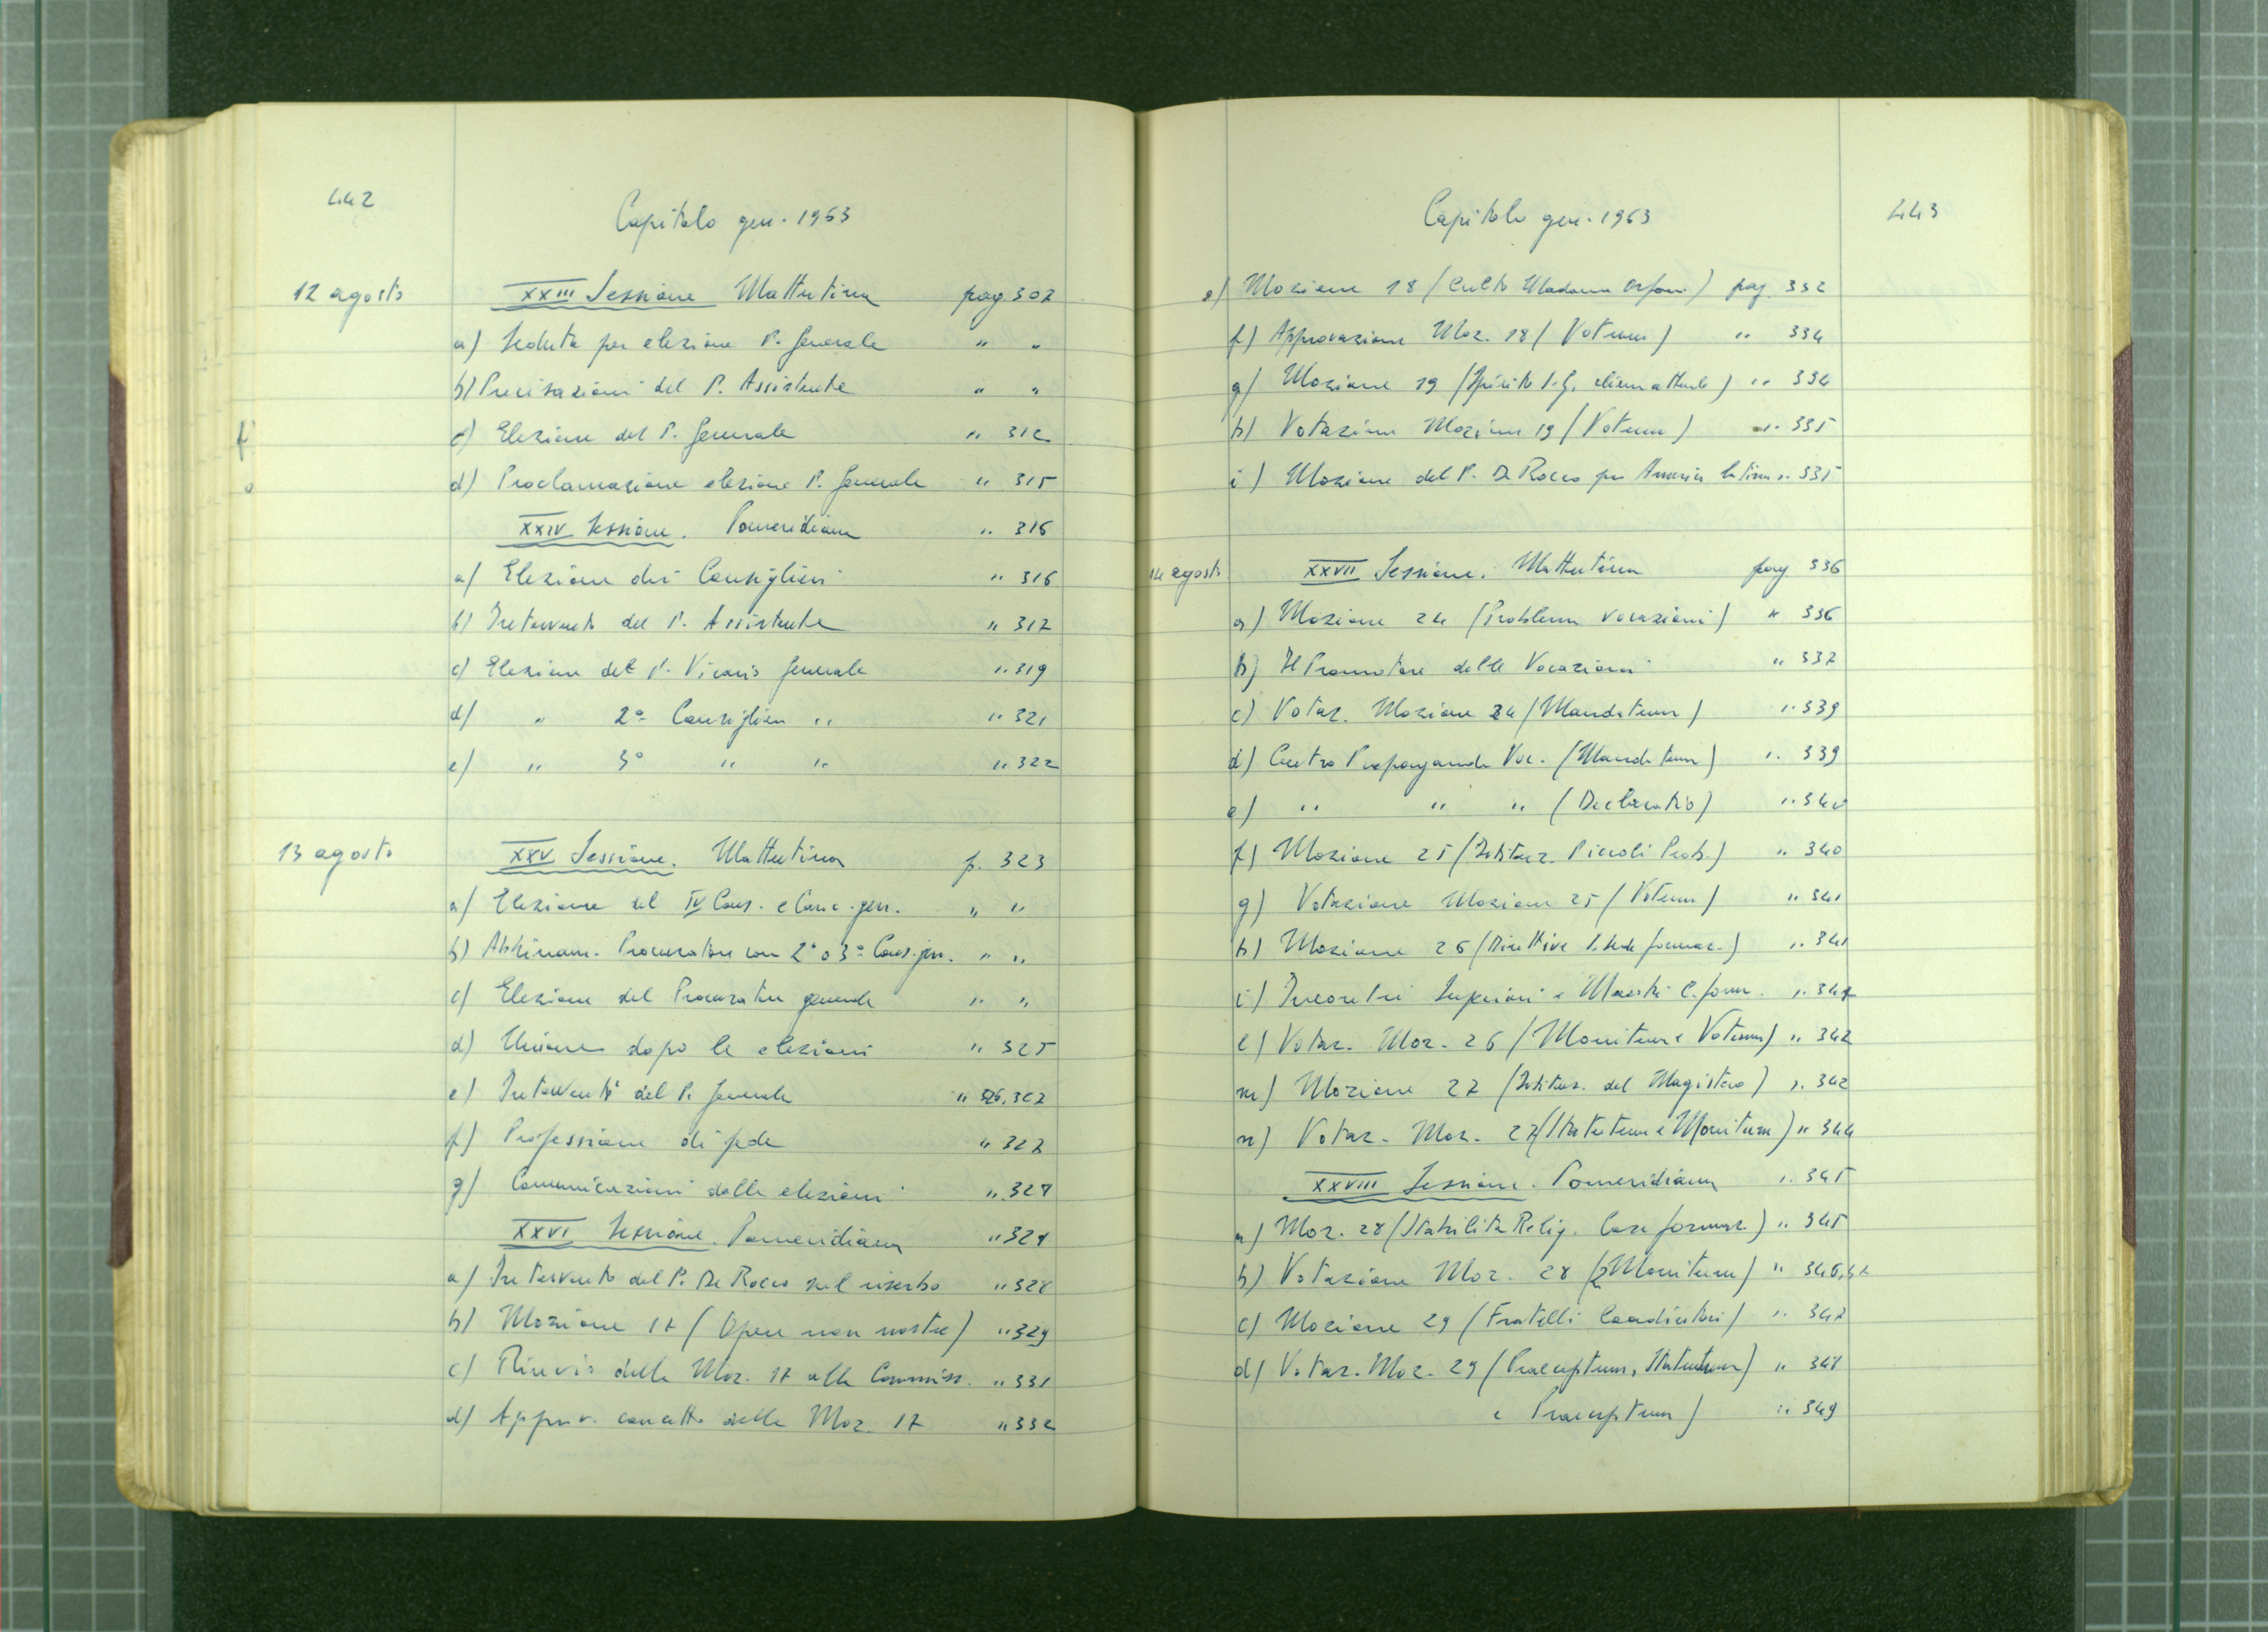 442
Capitolo gen. 1963
12 agosto XXIII Sessione Mattutina pag. 307
a) Seduta per elezione P. Generale " "
b) Precisazioni del P. Assistente " "
c) Elezione del P. Generale " 312
d) Proclamazione elezione P. Generale " 315
XXIV Sessione. Pomeridiana " 316
a) Elezione dei Consiglieri " 316
b) Intervento del P. Assistente " 317
c) Elezione del P. Vicario Generale " 319
d) " 2° Consigliere " " 321
e) " 3° " " " 322
13 agosto XXV Sessione. Mattutina p. 323
a) Elezione del IV Cons. e Canc. gen. " "
b) Abbinam. Procuratore con 2° o 3° Cons. gen. " "
c) Elezione del Procuratore generale " "
d) Unione dopo le elezioni " 325
e) Interventi del P. Generale " 326, 327
f) Professione di fede " 327
g) Comunicazioni delle elezioni " 328
XXVI Sessione. Pomeridiana " 328
a) Intervento del P. De Rocco sul riserbo " 328
b) Mozione 17 (Opere non nostre) " 329
c) Rinvio della Moz. 17 alla Commiss. " 331
d) Approv. concetto della Moz. 17 " 332
Capitolo gen. 1963
443
e) Mozione 18 (Culto Madonna Orfani) pag. 332
f) Approvazione Moz. 18 (Votum) " 334
g) Mozione 19 (Spirito S. G. ) " 334
h) Votazione Mozione 19 (Votum) " 335
i) Mozione del P. De Rocco per America Latina " 335
14 agosto XXVII Sessione. Mattutina pag 336
a) Mozione 24 (Problema vocazioni) " 336
b) Il Promotore delle Vocazioni " 337
c) Votaz. Mozione 24 (Mandatum) " 339
d) Centro Propaganda Voc. (Mandatum) " 339
e) " " " (Declaratio) " 340
f) Mozione 25 (Istituz. Piccoli Prob.) " 340
g) Votazione Mozione 25 (Votum) " 341
h) Mozione 26 (Direttive S. Sede formaz.) " 341
i) Incontri Superiori e Maestri C. form. " 342
l) Votaz. Moz. 26 (Monitum e Votum) " 342
m) Mozione 27 (Istituz. del Magistero) " 342
n) Votaz. Moz. 27 (Statutum e Monitum) " 344
XXVIII Sessione. Pomeridiana " 345
a) Moz. 28 (Stabilità Relig. Case formaz.) " 345
b) Votazione Moz. 28 (2 Monitum) " 346,
c) Mozione 29 (Fratelli Coadiutori) " 347
d) Votaz. Moz. 29 (Praeceptum, Statutum) " 348
e Praeceptum) " 349